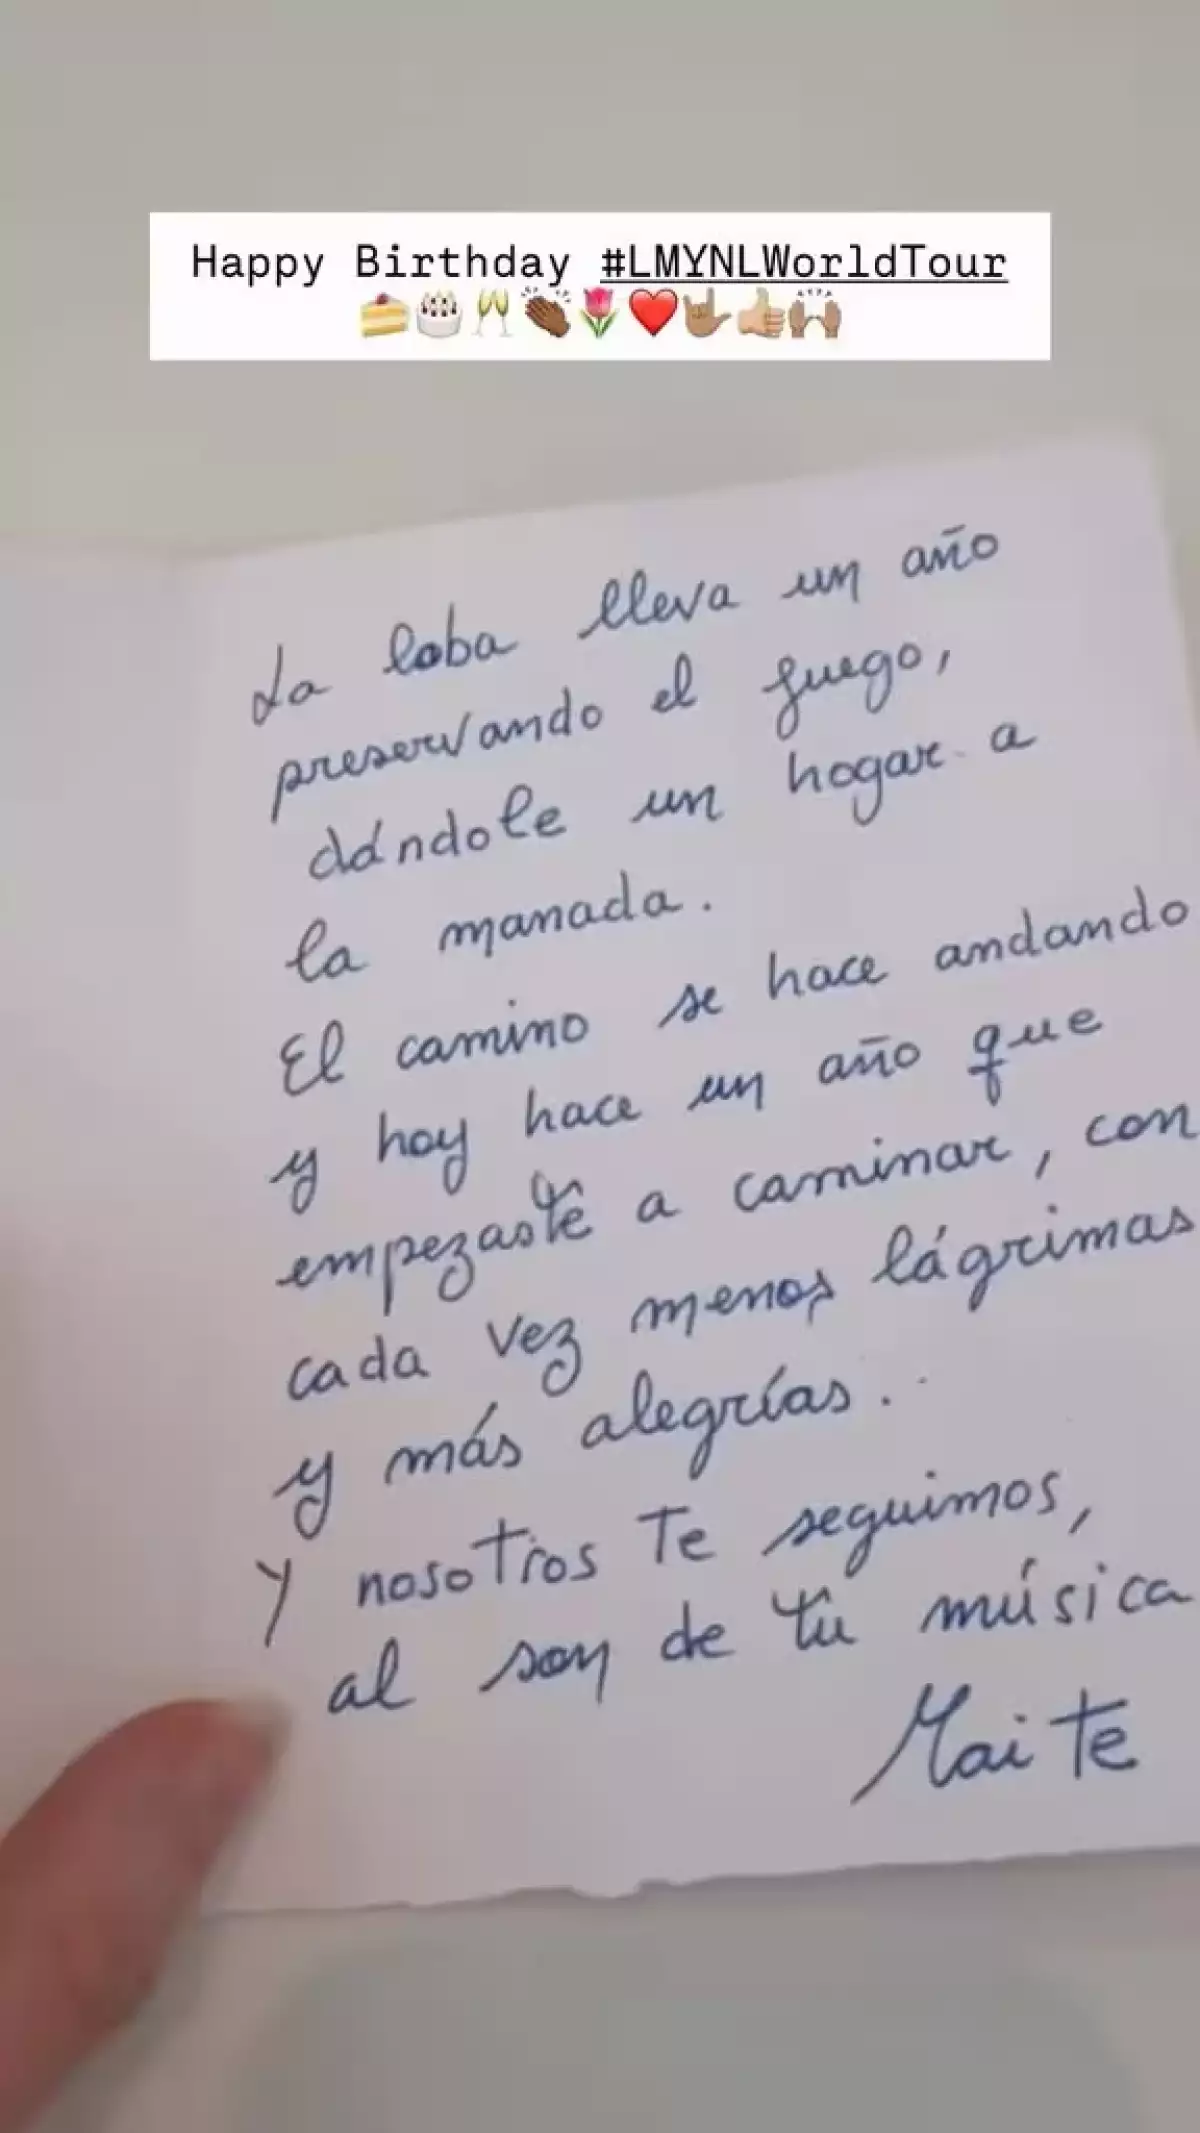 Happy Birthday #LMYNLWorldTour
🍰🎂🥂👏🏾🌷❤️🤟🏽👍🏼🙌🏽
La loba lleva un año
preservando el fuego,
dándole un hogar a
la manada.
El camino se hace andando
y hoy hace un año que
empezaste a caminar, con
cada vez menos lágrimas
y más alegrías.
Y nosotros te seguimos,
al son de tu música
Maite